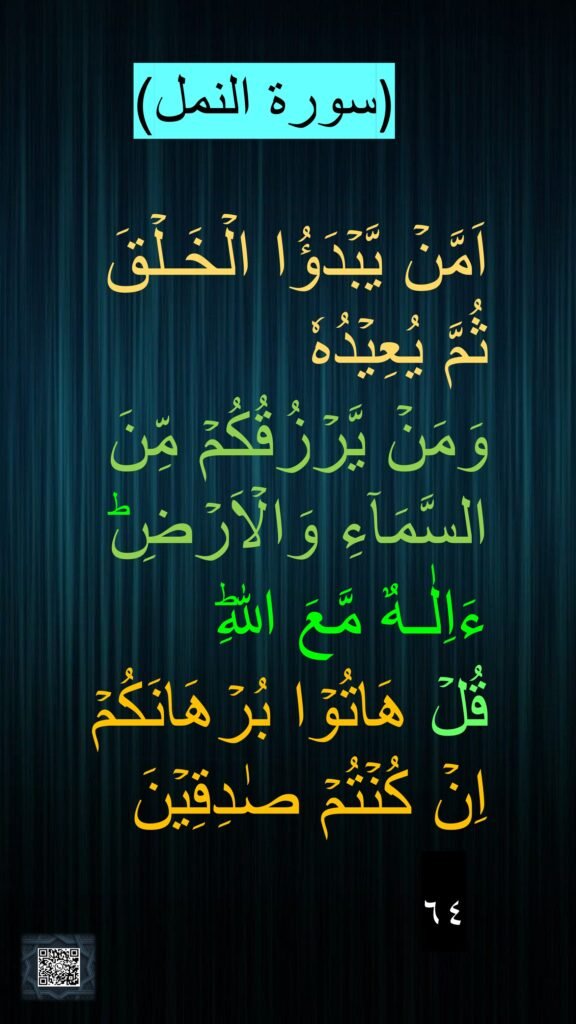 (سورة النمل)
اَمَّنۡ يَّبۡدَؤُا الۡخَـلۡقَ
ثُمَّ يُعِيۡدُهٗ
وَمَنۡ يَّرۡزُقُكُمۡ مِّنَ
السَّمَآءِ وَالۡاَرۡضِ‌ؕ
ءَاِلٰـهٌ مَّعَ اللّٰهِ‌ؕ
قُلۡ هَاتُوۡا بُرۡهَانَكُمۡ
اِنۡ كُنۡتُمۡ صٰدِقِيۡنَ
٦٤